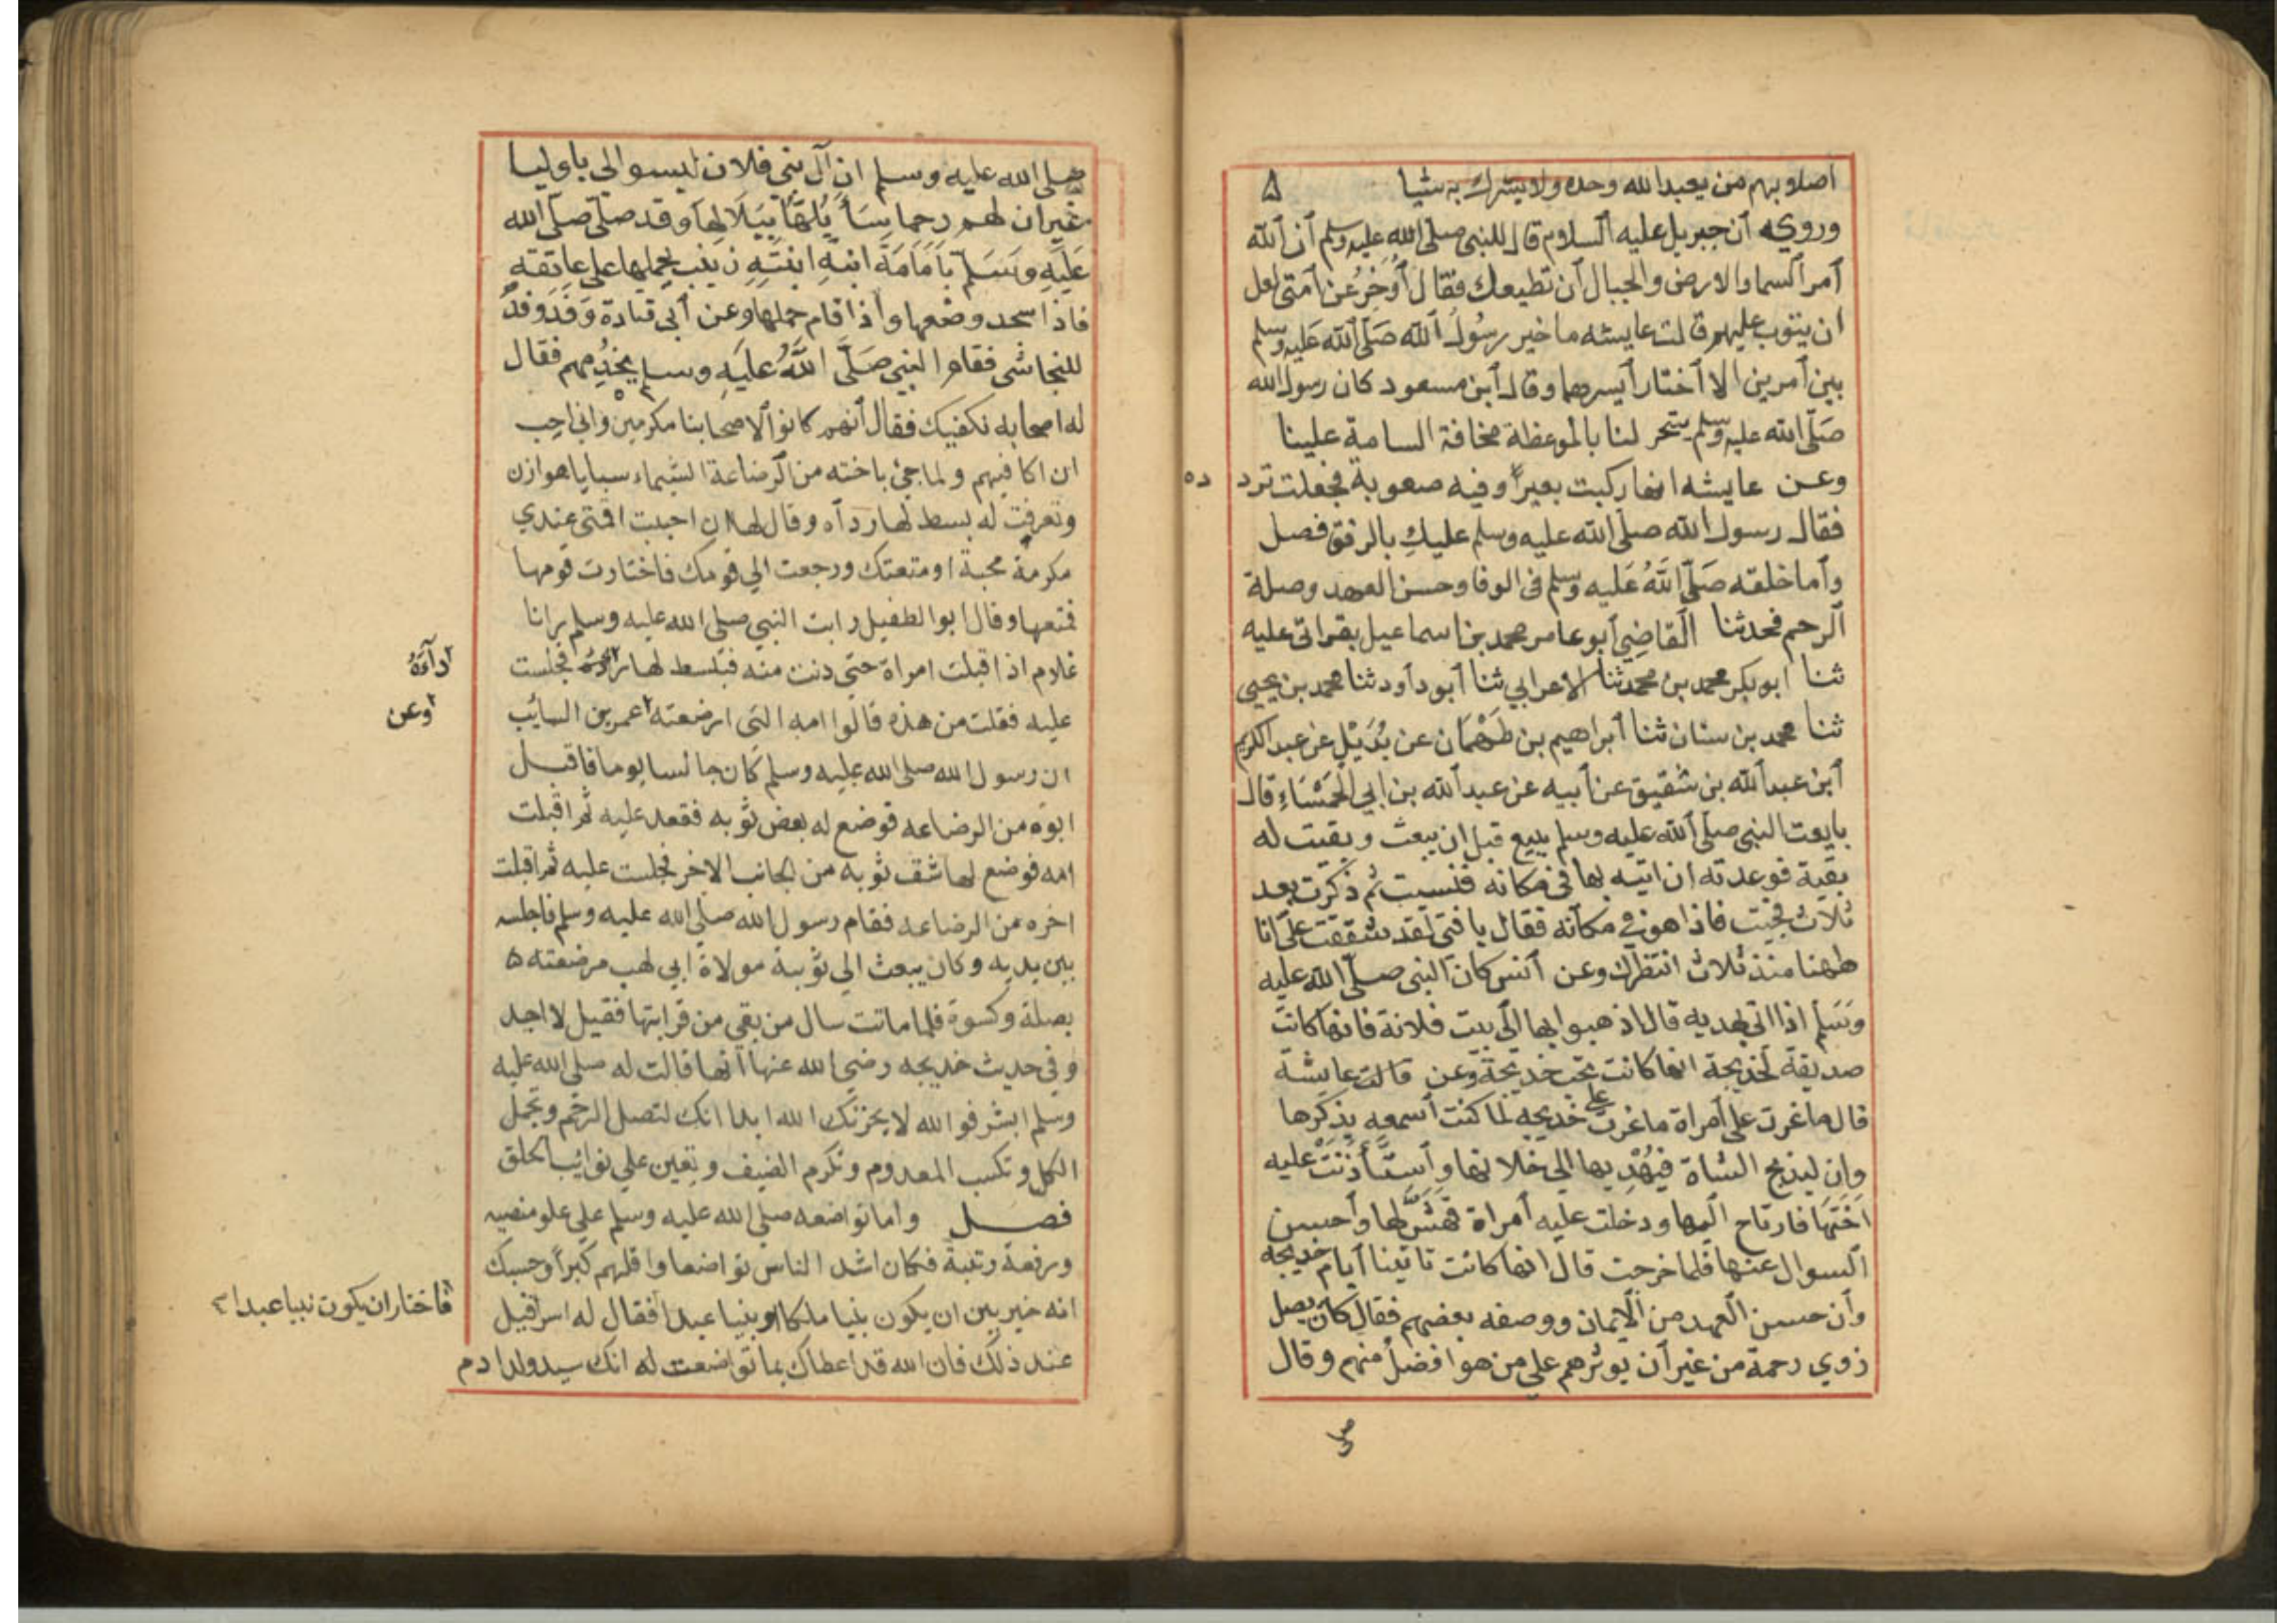 اصلابهم من يعبد الله وحده ولا يشرك به شيا ۵
وروي ان جبريل عليه السلام قال للنبي صلى الله عليه وسلم ان الله
امر السما والارض والجبال ان تطيعك فقال أُوَخِرُ عن امتى لعل
ان يتوب عليهم قالت عايشه ما خير رسول الله صلى الله عليه وسلم
بين امرين الا اختار ايسرهما وقال ابن مسعود كان رسول الله
صلى الله عليه وسلم يتحر لنا بالموعظة مخافة السامة علينا
وعن عايشه انها ركبت بعيرا وفيه صعوبة فجعلت ترد ده
فقال رسول الله صلى الله عليه وسلم عليكِ بالرفق فصل
واما خلقه صلى الله عليه وسلم في الوفا وحسن العهد وصلة
الرحم فحدثنا القاضي ابو عامر محمد بن اسماعيل بقراتي عليه
ثنا ابو بكر محمد بن محمد ثنا الاعرابي ثنا ابو داود ثنا محمد بن يحيى
ثنا محمد بن سنان ثنا ابراهيم بن طَهْمَان عن بُدَيْلٍ عن عبد الكريم
ابن عبد الله بن شقيق عن ابيه عن عبد الله بن ابي الحمْسَاءِ قال
بايعت النبي صلى الله عليه وسلم ببيع قبل ان يبعث وبقيت له
بقية فوعدته ان اتيه بها في مكانه فنسيت ثم ذكرت بعد
ثلاث فجيت فاذا هو في مكانه فقال يا فتى لقد شققت علىّ انا
ههنا منذ ثلاث انتظرك وعن انس كان النبي صلى الله عليه
وسلم اذا اتى بهديه قال اذهبوا بها الى بيت فلانة فانها كانت
صديقة لخديجة انها كانت تحب خديجة وعن قالت عايشة
قال ما غرت على امراة ما غرت على خديجه لما كنت اسمعه يذكرها
وان ليذبح الشاة فيُهْدِيها الى خلانها واستأذنت عليه
اختها فارتاح اليها ودخلت عليه امراة فهشّ لها واحسن
السوال عنها فلما خرجت قال انها كانت تاتينا ايام خديجه
وان حسن العهد من الايمان ووصفه بعضهم فقال كان يصل
ذوي رحمة من غير ان يوثرهم على من هو افضل منهم وقال
صلى
صلى الله عليه وسلم ان آل بني فلان ليسوا لي باوليا
غير ان لهم رحما سَأَبُلُّهَا بِبَلَالِهَا وقد صلّى صلى الله
عليه وسلم بامَامَةَ ابنةِ ابنَتِهِ زينب يحملها على عاتقه
فاذا سجد وضعها واذا قام حملها وعن ابي قتادة وَفَدَ وفدٌ
للنجاشي فقام النبي صلى الله عليه وسلم يخدُمهم فقال
له اصحابه نكفيك فقال انهم كانوا لاصحابنا مكرمين واني احب
ان اكافيهم ولما جئ باخته من الرضاعة الشيماء سبايا هوازن
وتعرفت له بسط لها رداه وقال لها ان احببت اقمتى عندي
مكرمة محبة او متعتك ورجعت الي قومك فاختارت قومها
فمتعها وقال ابو الطفيل رايت النبي صلى الله عليه وسلم وانا
غلام اذ اقبلت امراة حتى دنت منه فبسط لها فجلست
ردآءَهُ
عليه فقلت من هذه قالوا امه التى ارضعته عمر بن السايب
وعن
ان رسول الله صلى الله عليه وسلم كان جالسا يوما فاقبل
ابوه من الرضاعه فوضع له بعض ثوبه فقعد عليه ثم اقبلت
امه فوضع لها شق ثوبه من الجانب الاخر فجلست عليه ثم اقبلت
اخره من الرضاعه فقام رسول الله صلى الله عليه وسلم فاجلسه
بين يديه وكان يبعث الي ثويبة مولاة ابي لهب مرضعته ۵
بصلة وكسوة فلما ماتت سال من بقي من قرابتها فقيل لا احد
وفي حديث خديجه رضي الله عنها انها قالت له صلى الله عليه
وسلم ابشر فوالله لا يحزنك الله ابدا انك لتصل الرحم وتحمل
الكل وتكسب المعدوم وتكرم الضيف وتعين علي نوائب الحلق
فصل واما تواضعه صلى الله عليه وسلم علي علو منصبه
ورفعة رتبة فكان اشد الناس تواضعا واقلهم كبرا وحسبك
انه خير بين ان يكون نبيا ملكا او نبيا عبدا فقال له اسرافيل
فاختار ان يكون نبيا عبدا
عند ذلك فان الله قد اعطاك بما تواضعت له انك سيد ولد ادم